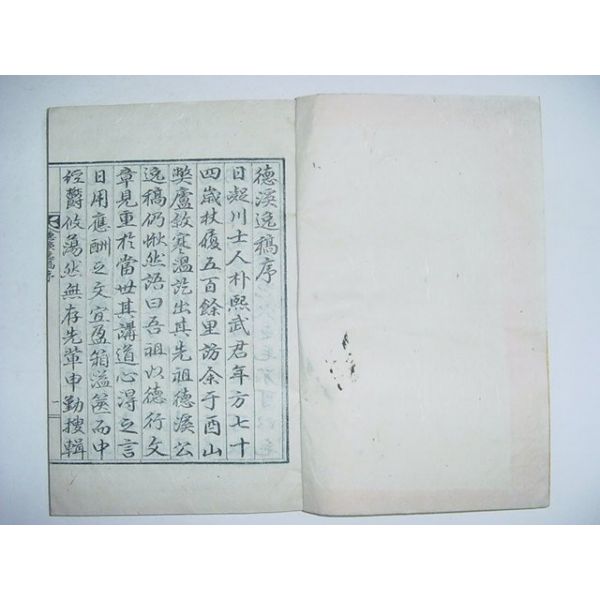 德溪逸稿序
日凝川士人朴熙武君年方七十
四歲杖履五百餘里訪余于酉山
獘廬敘寒溫訖出其先祖德溪公
逸稿仍愀然語曰吾祖以德行文
章見重於當世其講道心得之言
日用應酬之文宜盈箱溢篋而中
經欝攸蕩然無存先輩申勤搜輯